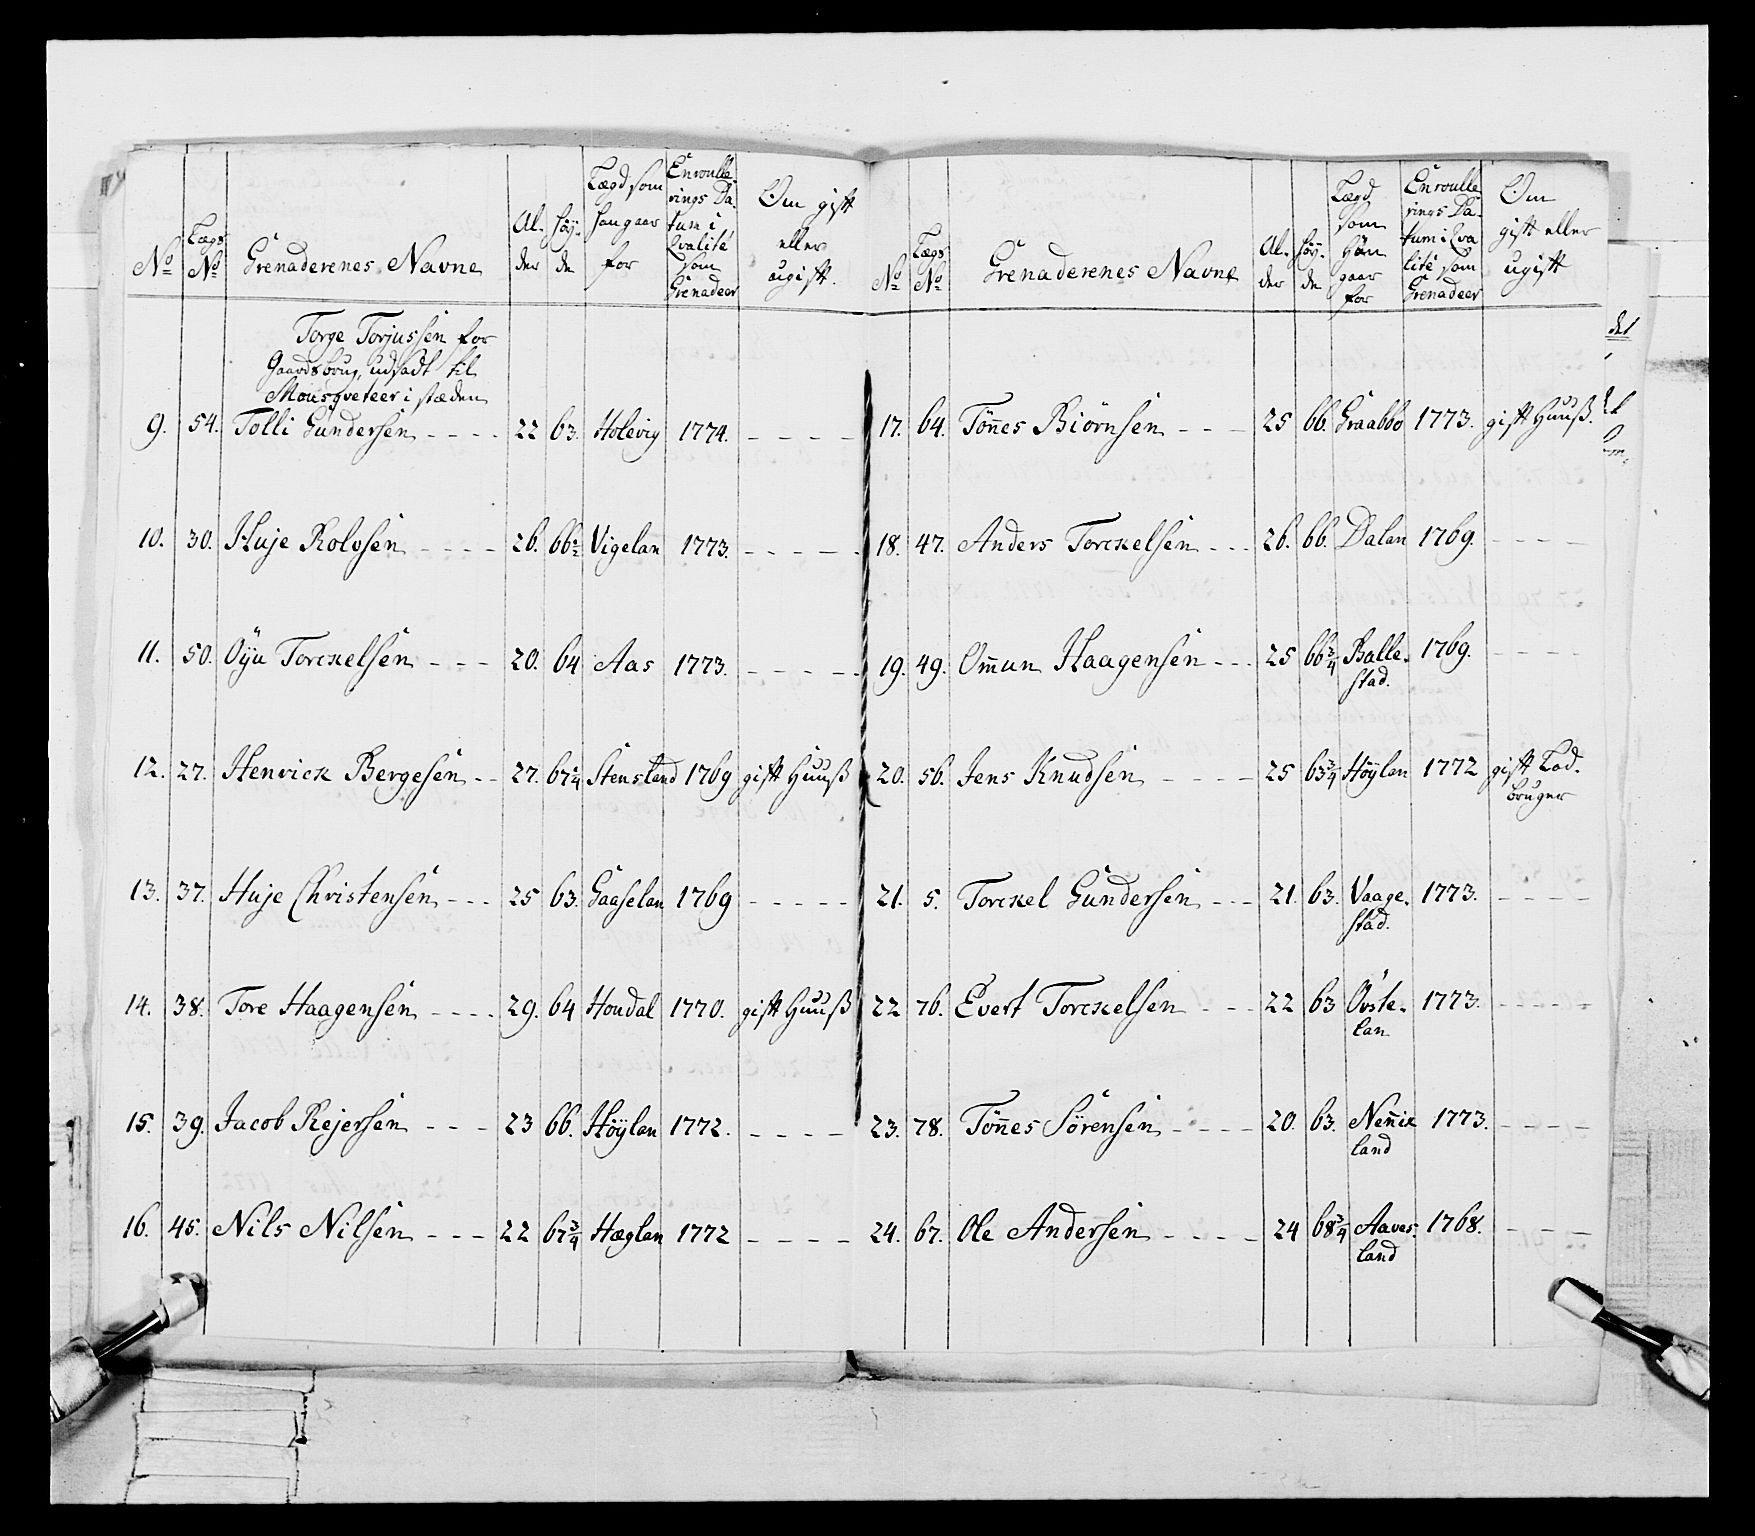 No | Lægs No | Grenaderenes Navne | Al-der | Höy-de | Lægd som han gaar for | Enroulle-rings Da-tum i Qvalité som Grenadeer | Om gift eller ugift.
Torge Torjussen for
Gaardsbrug, udsadt til
Mousqveteer i stæden
9. 54. Tolli Gundersen - - - - 22 63. Holevig 1774. - - - -
10. 30. Huje Rolvsen - - - - 26. 66½ Vigelan 1773. - - - - -
11. 50. Öyu Torckelsen - - - 20. 64 Aas 1773. - - - - -
12. 27. Henrick Bergesen - - 27. 67¼ Stensland 1769 gift Huuß
13. 37. Huje Christensen - - - 25 63. Gaaselan 1769 - - - - -
14. 38. Tore Haagensen - - - - 29. 64 Houdal 1770. gift Huuß
15. 39. Jacob Rejersen - - - 23 66. Höylan 1772. - - - -
16. 45. Nils Nilsen - - - 22 67¾ Hæglan 1772 - - - -
No | Lægs No | Grenaderenes Navne | Al-der | Höy-de | Lægd som han gaar for | Enroulle-rings Da-tum i Qva-lité som Grenadeer | Om gift eller ugift
17. 64. Tön̄es Biörnsen - - - 25 66. Graabbo 1773. gift Huuß.
18. 47. Anders Torckelsen - - - 26. 66. Dalan 1769. - - - -
19. 49. Om̄un Haagensen - - - 25 66¾ Balle-stad. 1769. - - - -
20. 56. Jens Knudsen - - - - 25 63¾ Höylan 1772 gift Lod-bruger
21. 5. Torckel Gundersen - - - 21. 63. Vaage-stad. 1773. - - - -
22 76. Evert Torckelsen - - - 22 63 Övste-lan 1773. - - - -
23. 78. Tön̄es Sörensen - - - - 20. 63. Nen̄ie land 1773. - - - -
24. 67. Ole Andersen - - - - 24 68¾ Aaves-land 1768. - - -
det